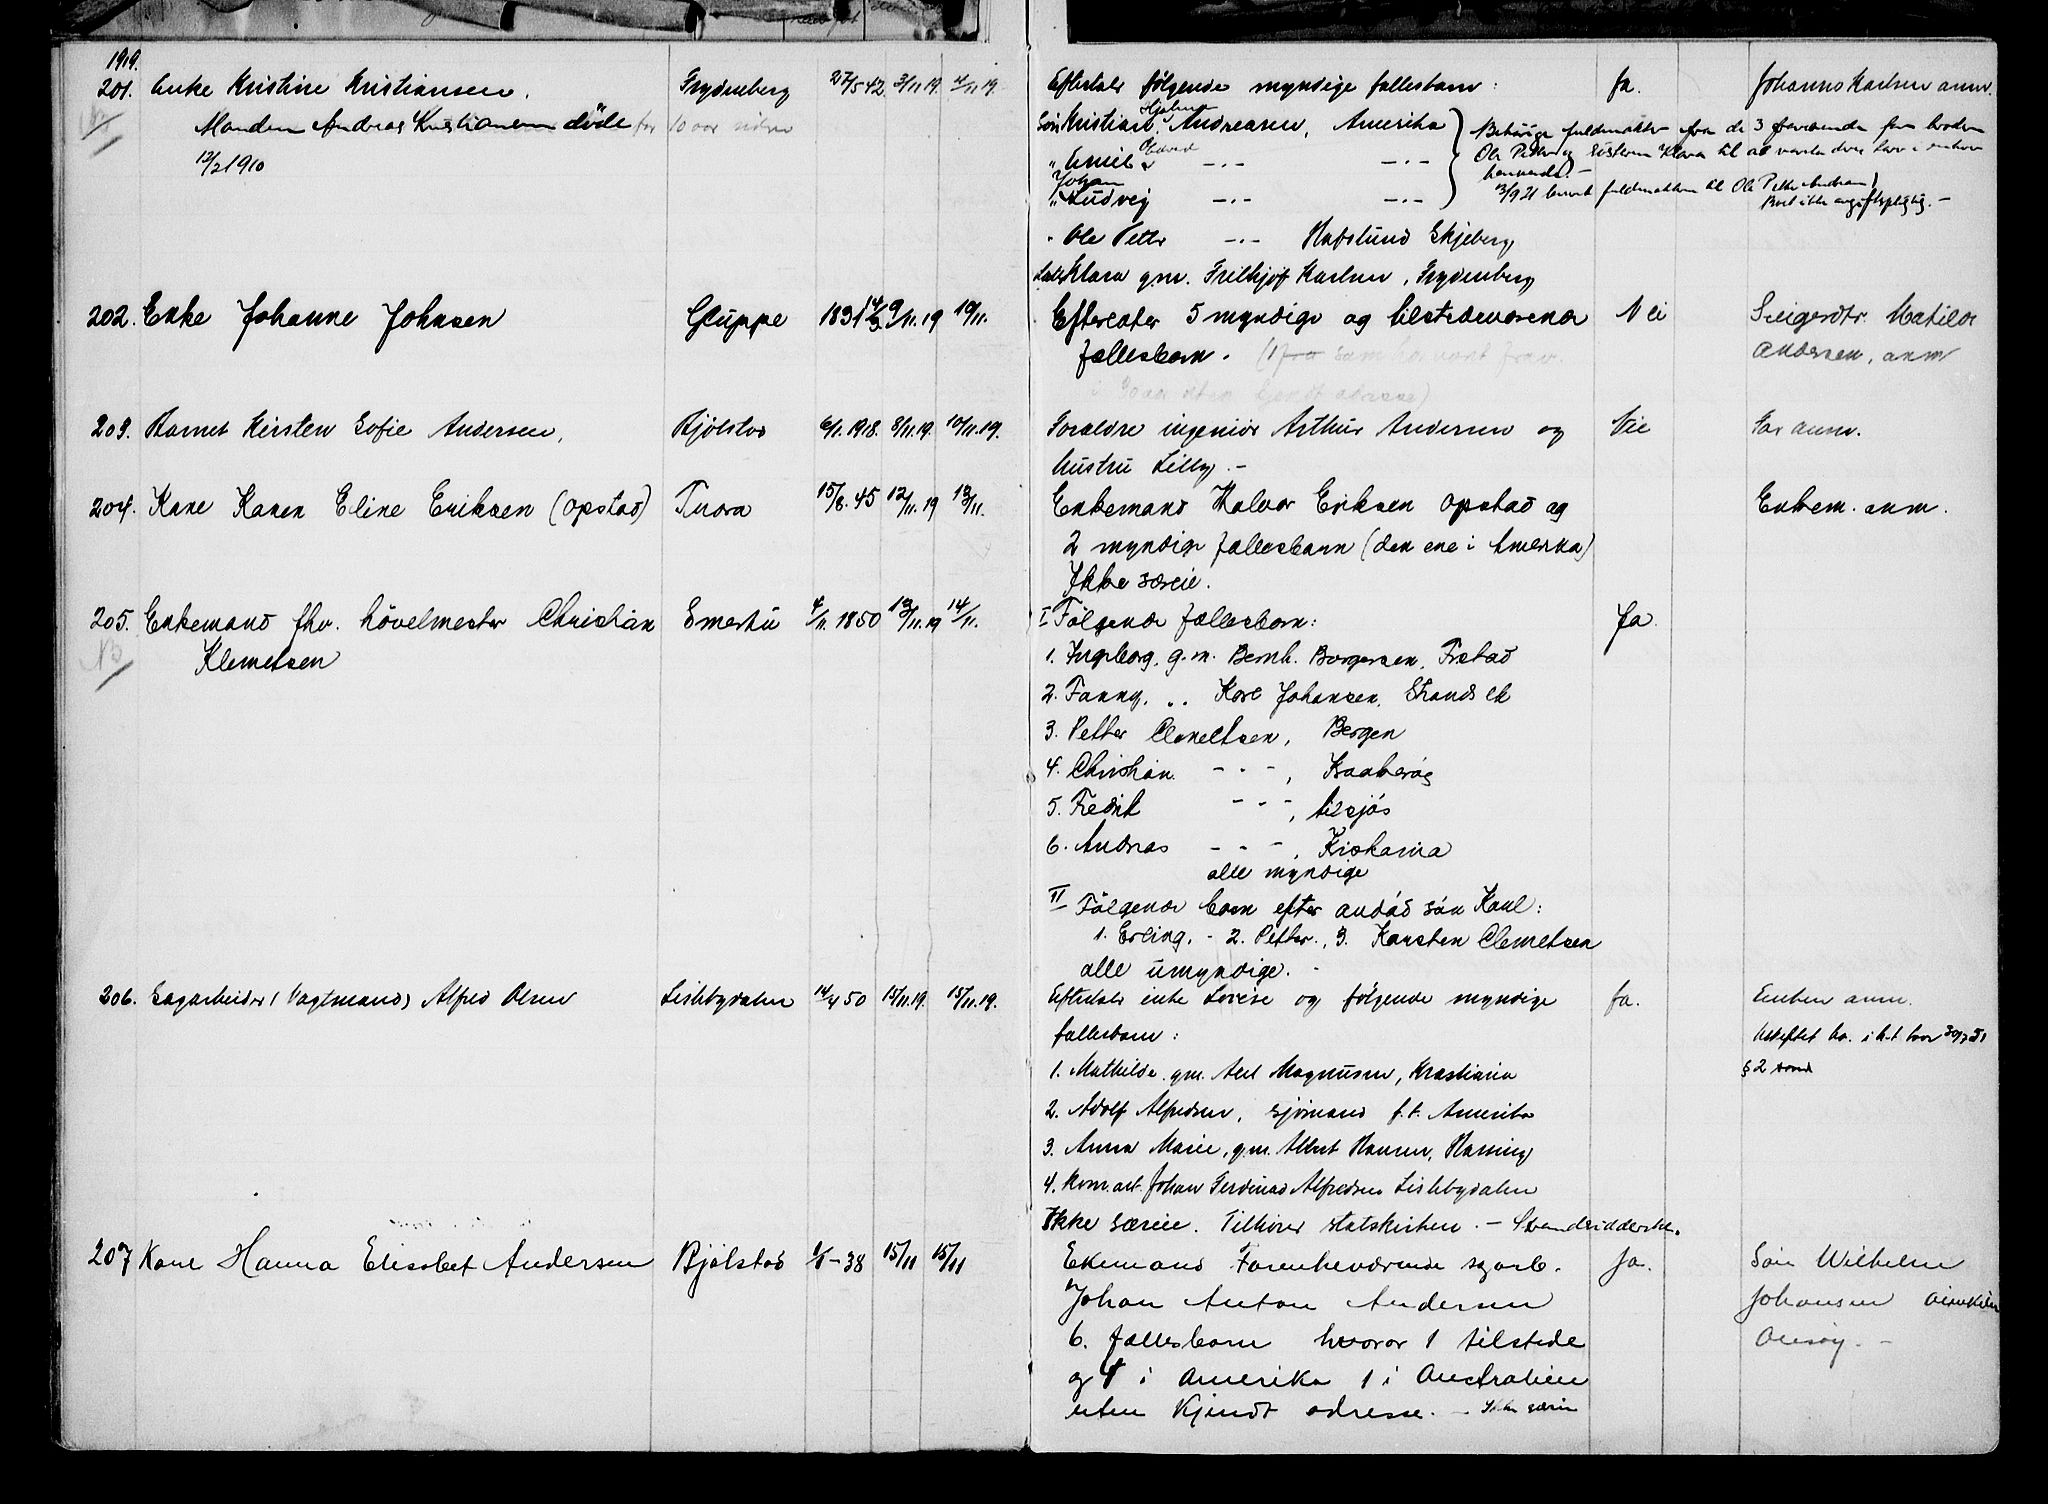 1919.
201. Enke Kristine Kristiansen. Grydeberg 27/5 42 3/11 19. 4/11 19. Efterlater følgende myndige fællesbarn: Ja. Johannes Karlsen anm.
NB Manden Andreas Kristiansen døde for 10 aar siden
12/2 1910
Søn Kristian Hjalmar Andreasen, Amerika
" Emil Edvard -"- -"-
" Johan Ludvig -"- -"-
" Ole Petter -"- Hafslund Skjeberg
Klara g.m. Frithjof Karlsen, Grydeberg
fuldmakter fra de 3 fraværende
Ole Petter og søsteren Klara til at
13/9 21 fuldmakten til Ole Petter Andreasen
Boet ikke avgiftspligtig. -
202. Enke Johanne Johnsen Gluppe 1831 14/3 9/11. 19 10/11. Efterlater 5 myndige og tilstedeværende Nei Svigerdtr. Matilde
fællesbarn. Andersen, anm
203. Barnet Kirsten Sofie Andersen, Bjølstad 6/1. 1918. 8/11 19. 10/11. 19. Forældre ingeniør Arthur Andersen og Nei Far anm.
hustru Lilly. -
204. Kone Karen Eline Eriksen (Opstad) Tuora 15/8. 45 12/11. 19 13/11. Enkemand Halvor Eriksen Opstad og Enkem. anm.
2 myndige fællesbarn (den ene i Amerika)
Ikke særeie.
205. Enkemand fhv. høvelmester Christian Smertu 4/11. 1850 13/11. 19 14/11. I Følgende fællesbarn: Ja.
NB Klemetsen
1. Ingeborg, g.m. Bernh. Borgersen, Frstad
2. Fanny, " Karl Johansen, Strands
3. Petter Clemetsen, Bergen
4. Christian -"-, Kraakerøy
5. Fredrik -"-, tilsjøs
6. Andreas -"-, Kristiania
alle myndige
II Følgende barn efter avdød søn Karl:
1. Erling. - 2. Petter., 3. Karsten Clemetsen
alle umyndige. -
206. Sagarbeider (Vagtmand) Alfred Olsen Lislebydalen 14/4 50 15/11 19. 15/11. 19. Efterlater enke Lovise og følgende myndige Ja. Enken anm.
fællesbarn:
§ 2
1. Mathilde g.m. Axel Magnussen, Kristiania
2. Adolf Alfredsen, sjømand f.t. Amerika
3. Anna Marie, g.m. Albert Hansen,
4. Kom.arb. Johan Ferdinand Alfredsen Lislebydalen
Ikke særeie. Tilhører statskirken. -
207 Kone Hanna Elisabet Andersen Bjølstad 1/1-38 15/11 15/11 Ekemand Forenheværende sgarb. Ja. Søn Wilhelm
Johan Anton Andersen Johansen
6. fællesbarn hvorav 1 tilstede Onsøy. -
og 4 i Amerika 1 i Australien
uten kjendt adresse. - Ikke særeie